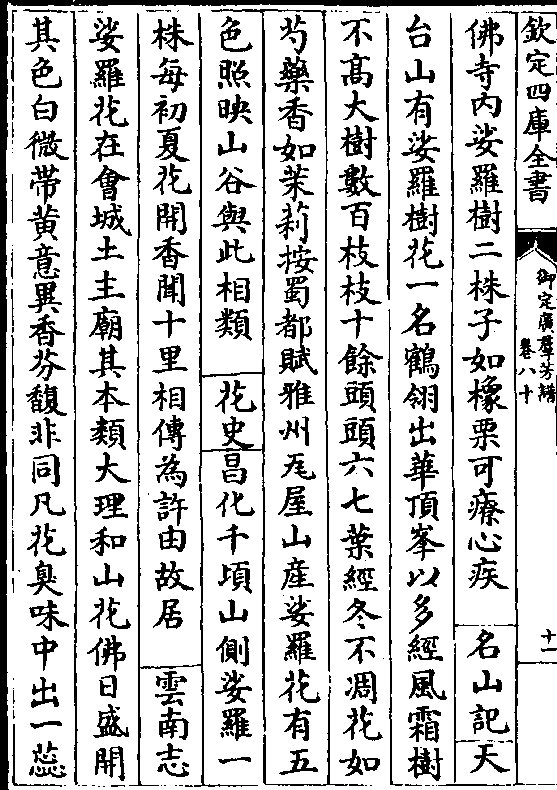 欽定四庫全書
御定廣群芳譜
卷八十
十一
佛寺内娑羅樹二株子如橡栗可療心疾 名山記 天
台山有娑羅樹花一名鶴翎出華頂峯以多經風霜樹
不髙大樹數百枝枝十餘頭頭六七葉經冬不凋花如
芍藥香如茉莉按蜀都賦雅州瓦屋山産娑羅花有五
色照映山谷與此相類 花史 昌化千頃山側娑羅一
株每初夏花開香聞十里相傳為許由故居 雲南志
娑羅花在會城土主廟其本類大理和山花佛日盛開
其色白微帯黄意異香芬馥非同凡花臭味中出一蕊